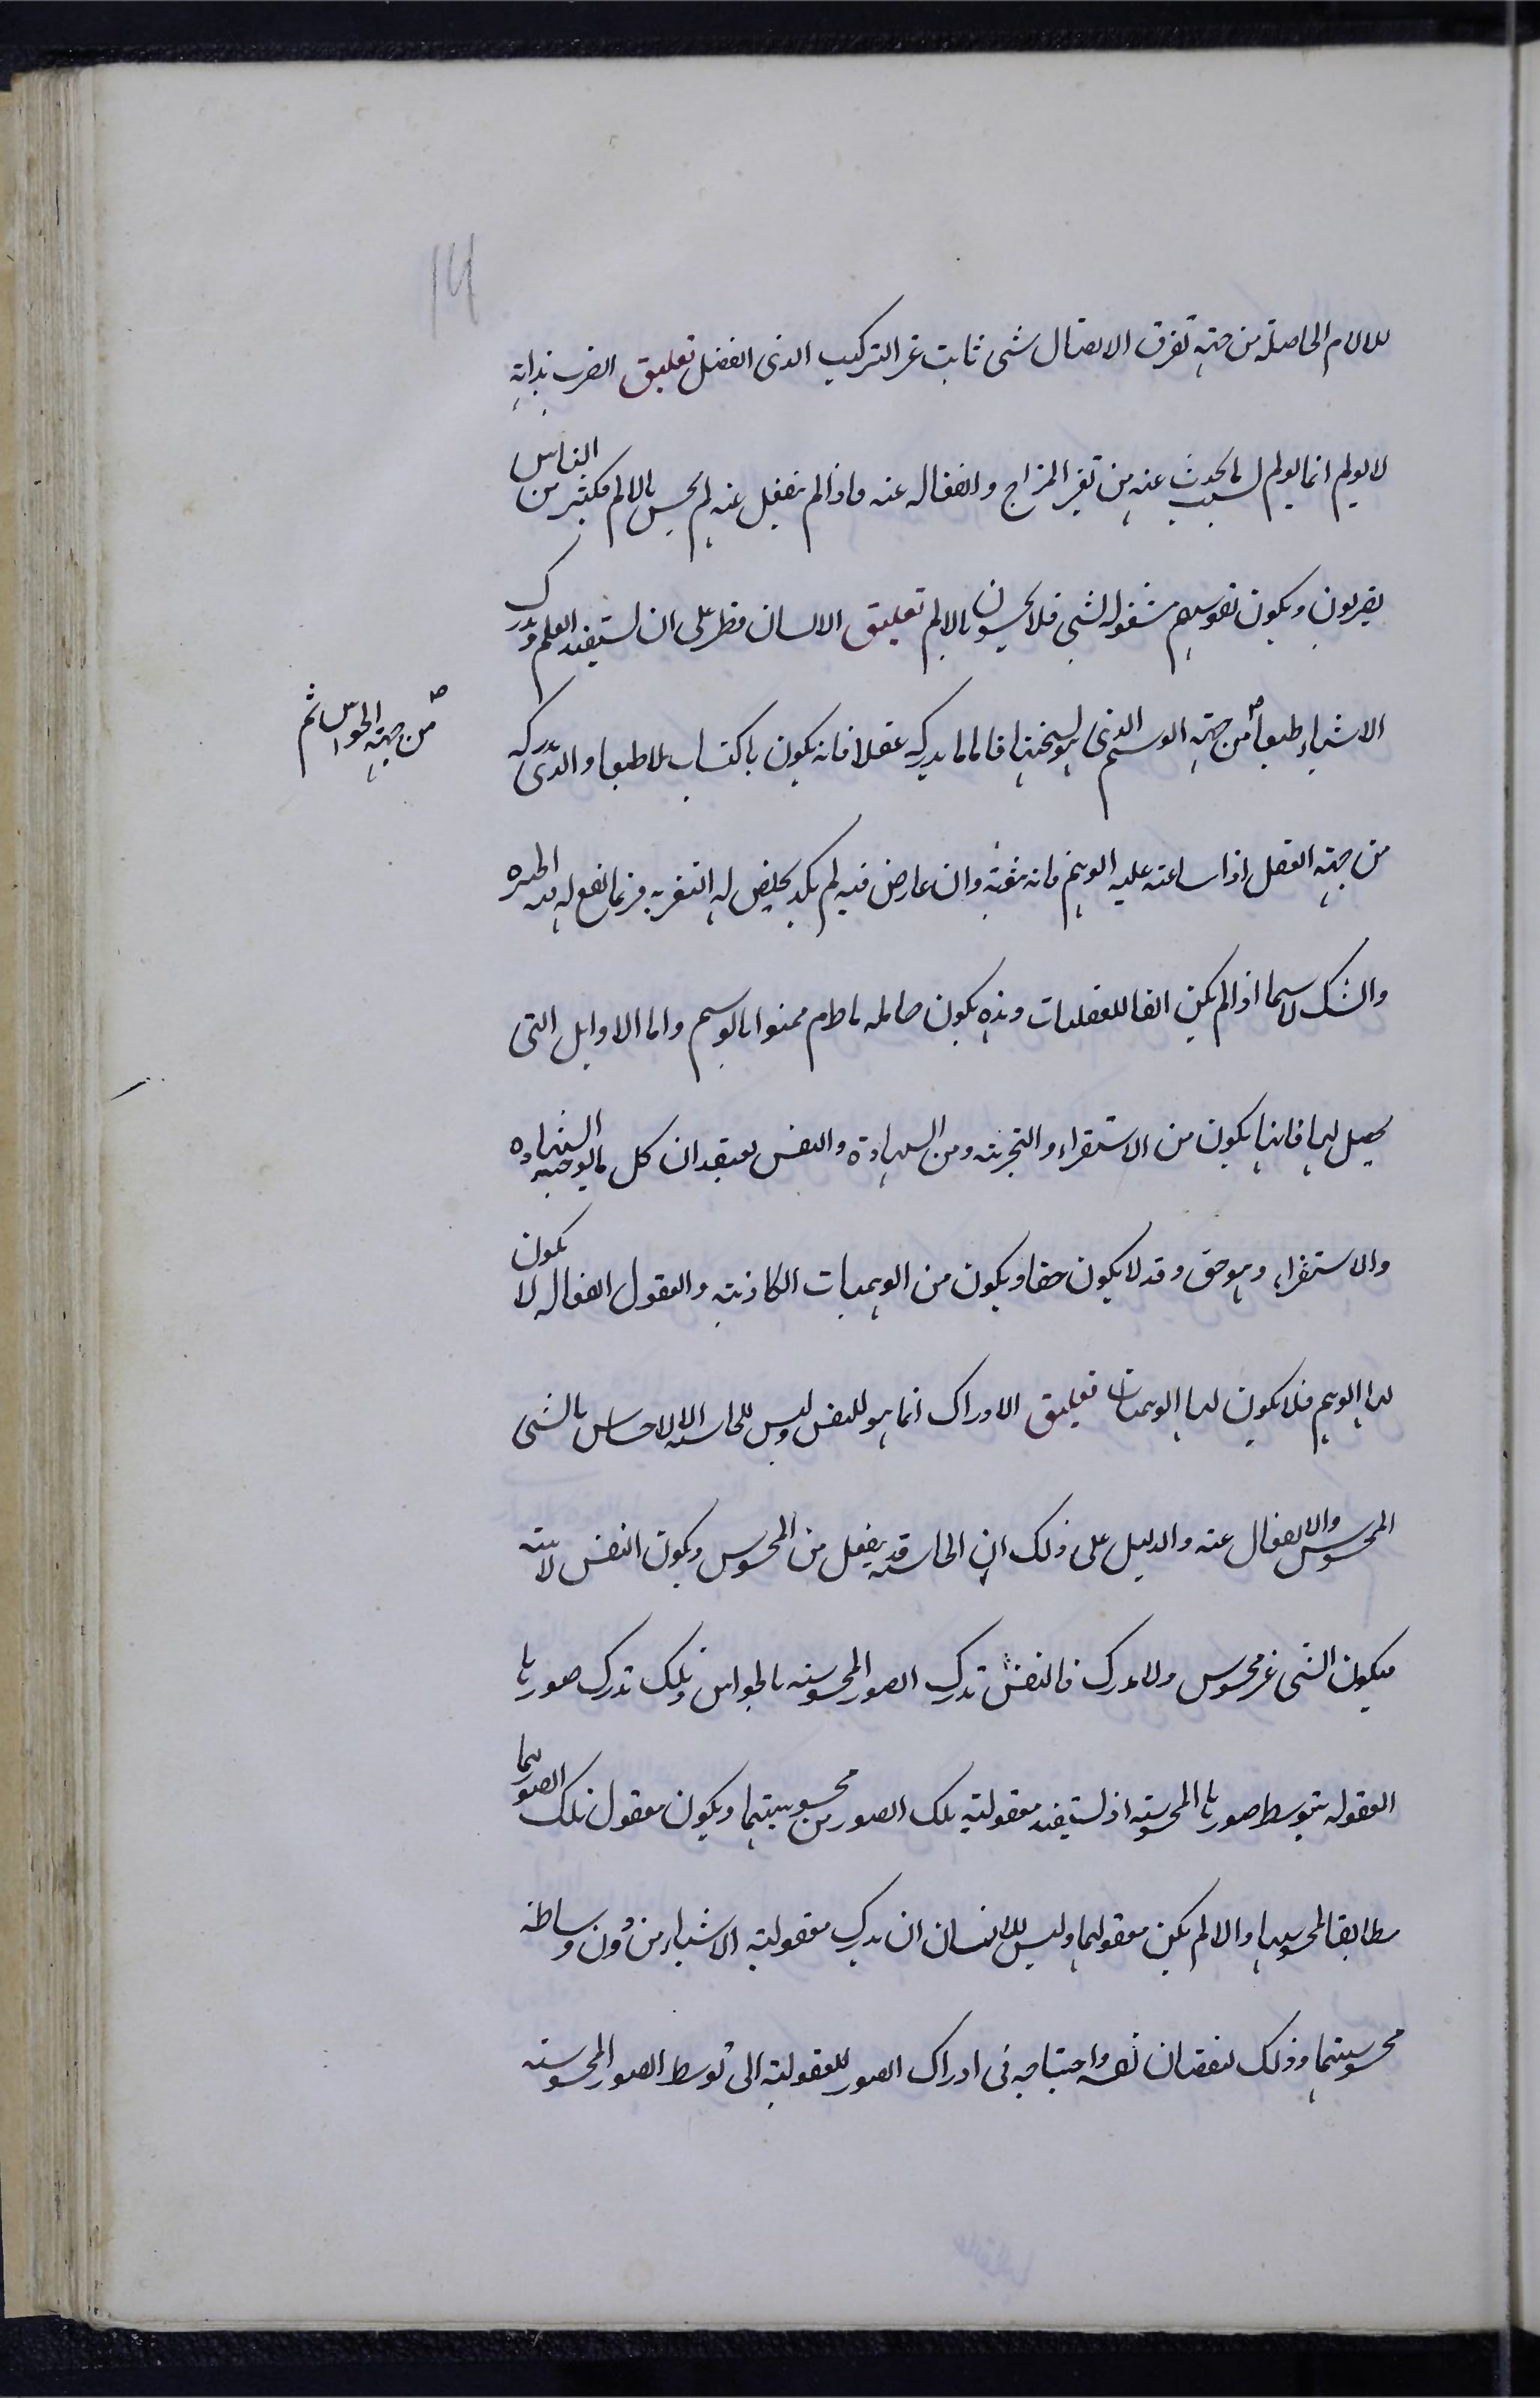 14
للالام الحاصلة من جهة تفرق الاتصال شی ثابت غیر الترکیب الذی انفصل تعلیق الضرب بذاته
لا یولم انما یولم بسبب ما یحدث عنه من تغیر المزاج وانفعاله عنه واذا لم ینفعل عنه لم یحس بالالم فکثیر من الناس
یضربون ویکون نفوسهم مشغوله لشی فلا یحسون بالالم تعلیق الانسان فطر علی ان یستفید العلم ویدرک
الاشیاء طبعا من جهة الوهم الذی هو نسختها فاما ما یدرکه عقلا فانه یکون باکتساب لا طبعا والذی یدرکه
من جهة الحواس ثم
من جهة العقل اذا ساعته علیه الوهم فانه یثق به وان عارض فیه لم یکد یخلص له التفرید فربما تقع له فیه الحیره
والشک لاسیما اذا لم یکن الفا للعقلیات وهذه یکون حاله مادام ممنوا بالوهم واما الاوایل التی
یحصل لها فانها یکون من الاستقراء والتجربة ومن الشهادة والنفس تعتقد ان کل ما یوجبه الشهاده
والاستقراء وهو حق وقد لا یکون حقا ویکون من الوهمیات الکاذبة والعقول الفعاله لا یکون
لها الوهم فلا یکون لها الوهمیات تعلیق الادراک انما هو للنفس ولیس للحاسه الا الاحساس بالشی
المحسوس والانفعال عنه والدلیل علی ذلک ان الحاسه قد ینفعل من المحسوس ویکون النفس لاهیه
فیکون الشی غیر محسوس ولا مدرک فالنفس تدرک الصور المحسوسه بالحواس وتلک تدرک صورها
المعقوله بتوسط صورها المحسوسه اذ تستفید معقولیة تلک الصور من محسوسیتها ویکون معقول تلک الصور لها
مطابقا لمحسوسها والا لم یکن معقولها ولیس للانسان ان یدرک معقولیة الاشیاء من دون وساطة
محسوسیتها وذلک لنقصان نفسه واحتیاجه فی ادراک الصور المعقولیة الی توسط الصور المحسوسه